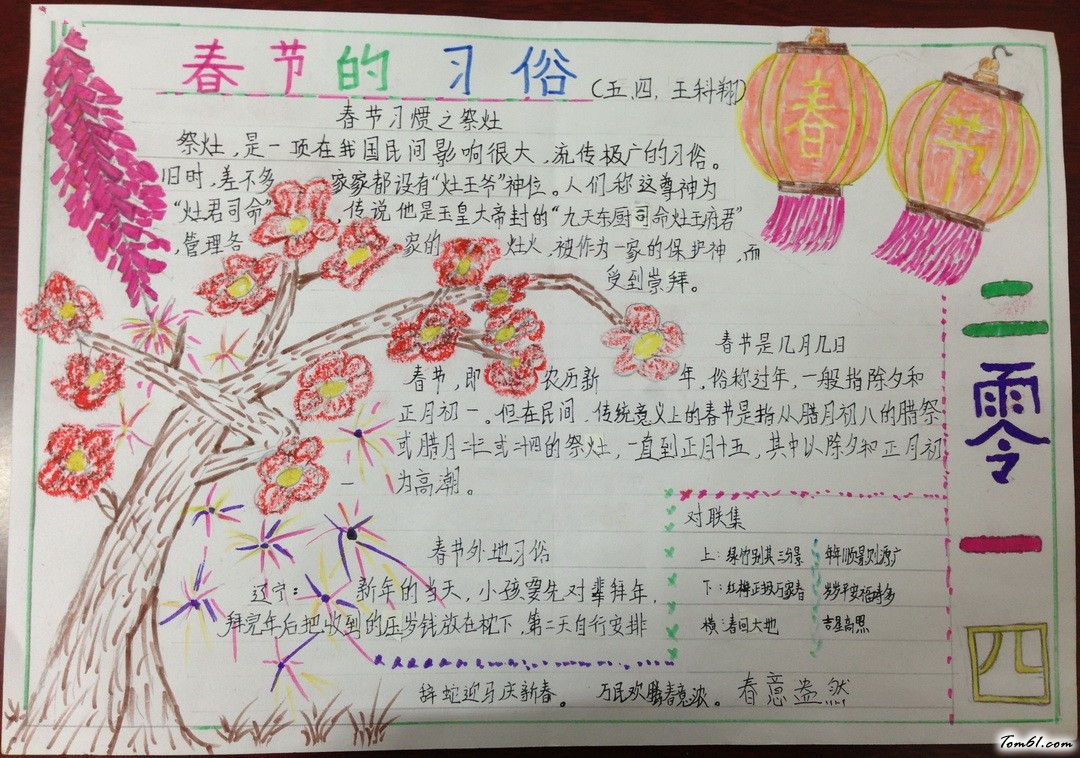 春节的习俗
(五、四，王科翔)
春节习惯之祭灶
祭灶，是一项在我国民间影响很大，流传极广的习俗。
旧时，差不多家家都设有"灶王爷"神位。人们称这尊神为
"灶君司命"，传说他是玉皇大帝封的"九天东厨司命灶王府君"
，管理各家的灶火，被作为一家的保护神，而
受到崇拜。
春
节
春节是几月几日
春节，即农历新年，俗称过年，一般指除夕和
正月初一。但在民间，传统意义上的春节是指从腊月初八的腊祭
或腊月廿三或廿四的祭灶，一直到正月十五，其中以除夕和正月初
一为高潮。
对联集
上：绿竹别其三分景 年年顺景则源广
下：红梅正报万家春 岁岁平安福寿多
横：春回大地 吉星高照
春节外地习俗
辽宁：新年的当天，小孩要先对辈拜年，
拜完年后把收到的压岁钱放在枕下，第二天自行安排
辞蛇迎马庆新春。 万民欢腾春意浓。 春意盎然
二
零
一
四
Tom61.com